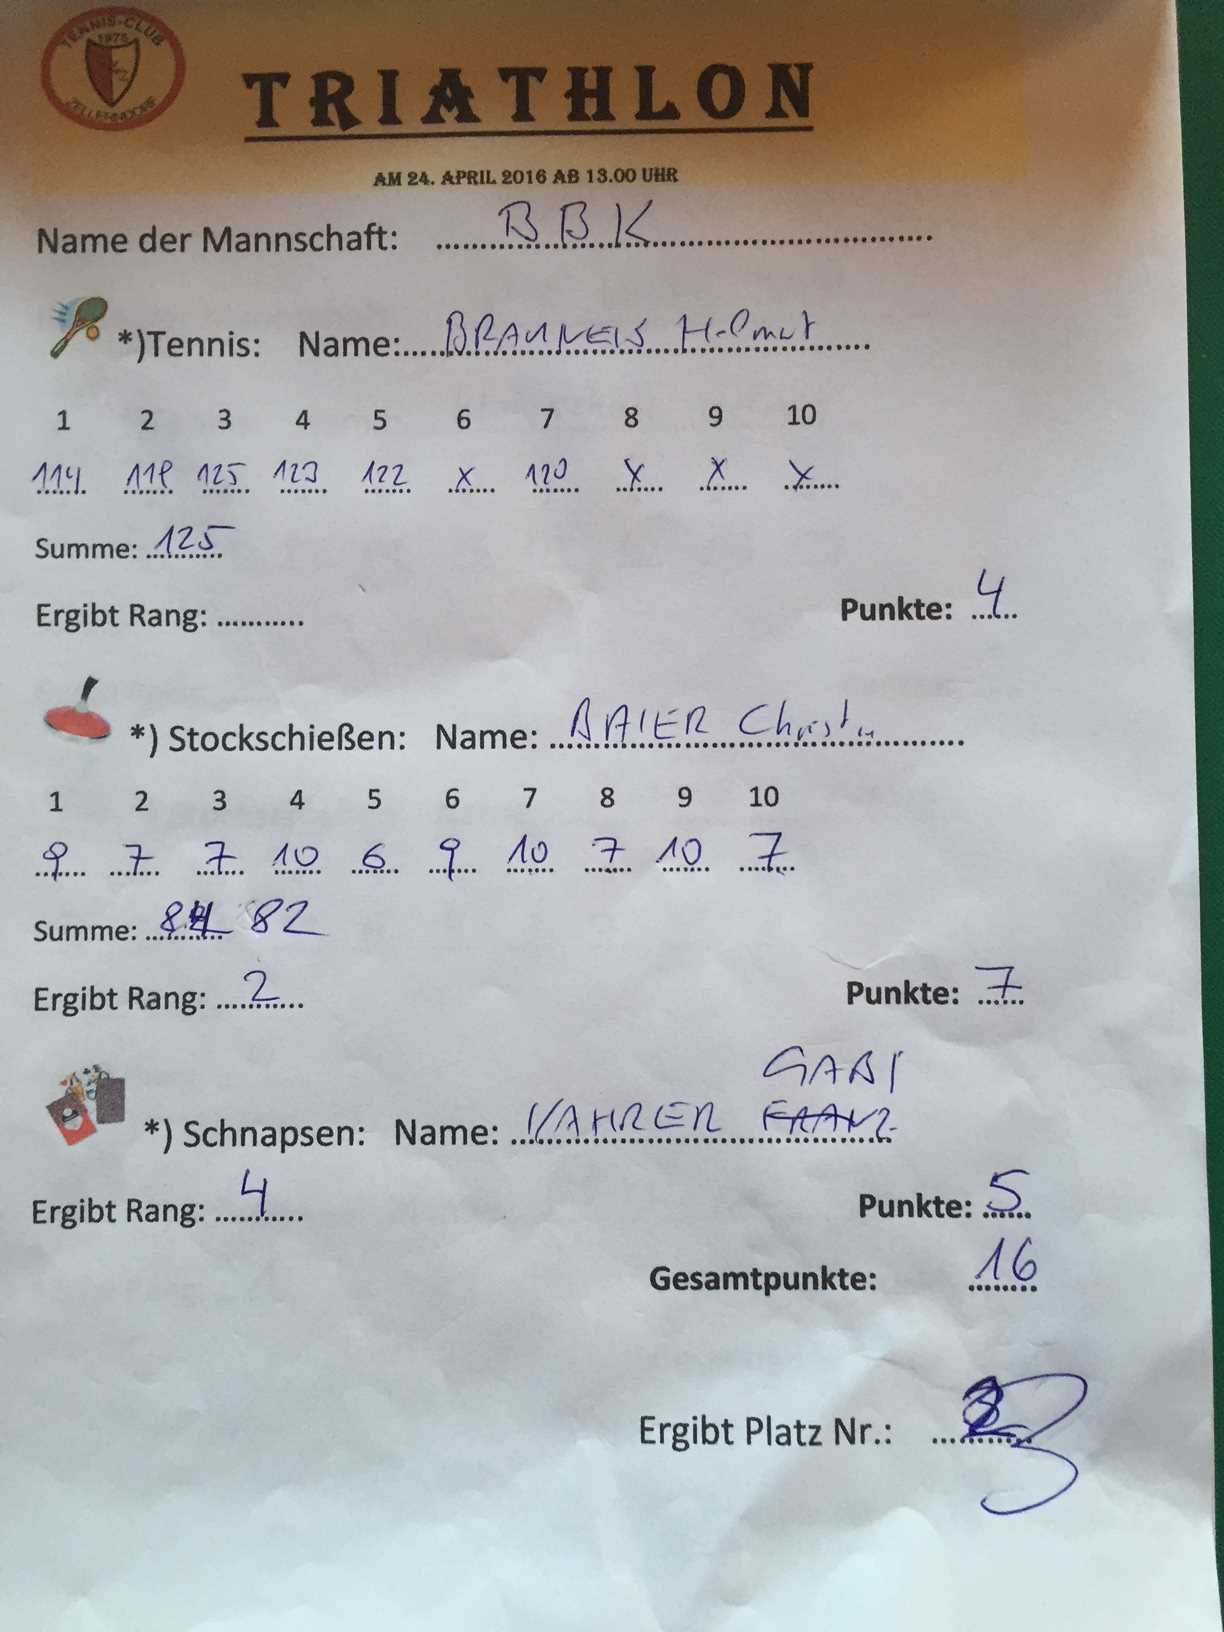 TENNIS-CLUB
1975
ZELLERNDORF
TRIATHLON
AM 24. APRIL 2016 AB 13.00 UHR
Name der Mannschaft: BBK
*)Tennis: Name: BRAUNEIS Helmut
1 2 3 4 5 6 7 8 9 10
114 118 125 123 122 x 120 x x x
Summe: 125
Ergibt Rang: ...........
Punkte: 4
*) Stockschießen: Name: BAIER Christin
1 2 3 4 5 6 7 8 9 10
9 7 7 10 6 9 10 7 10 7
Summe: 82
Ergibt Rang: 2
Punkte: 7
GABI
*) Schnapsen: Name: VAHRER FRANZ
Ergibt Rang: 4
Punkte: 5
Gesamtpunkte: 16
Ergibt Platz Nr.: 3